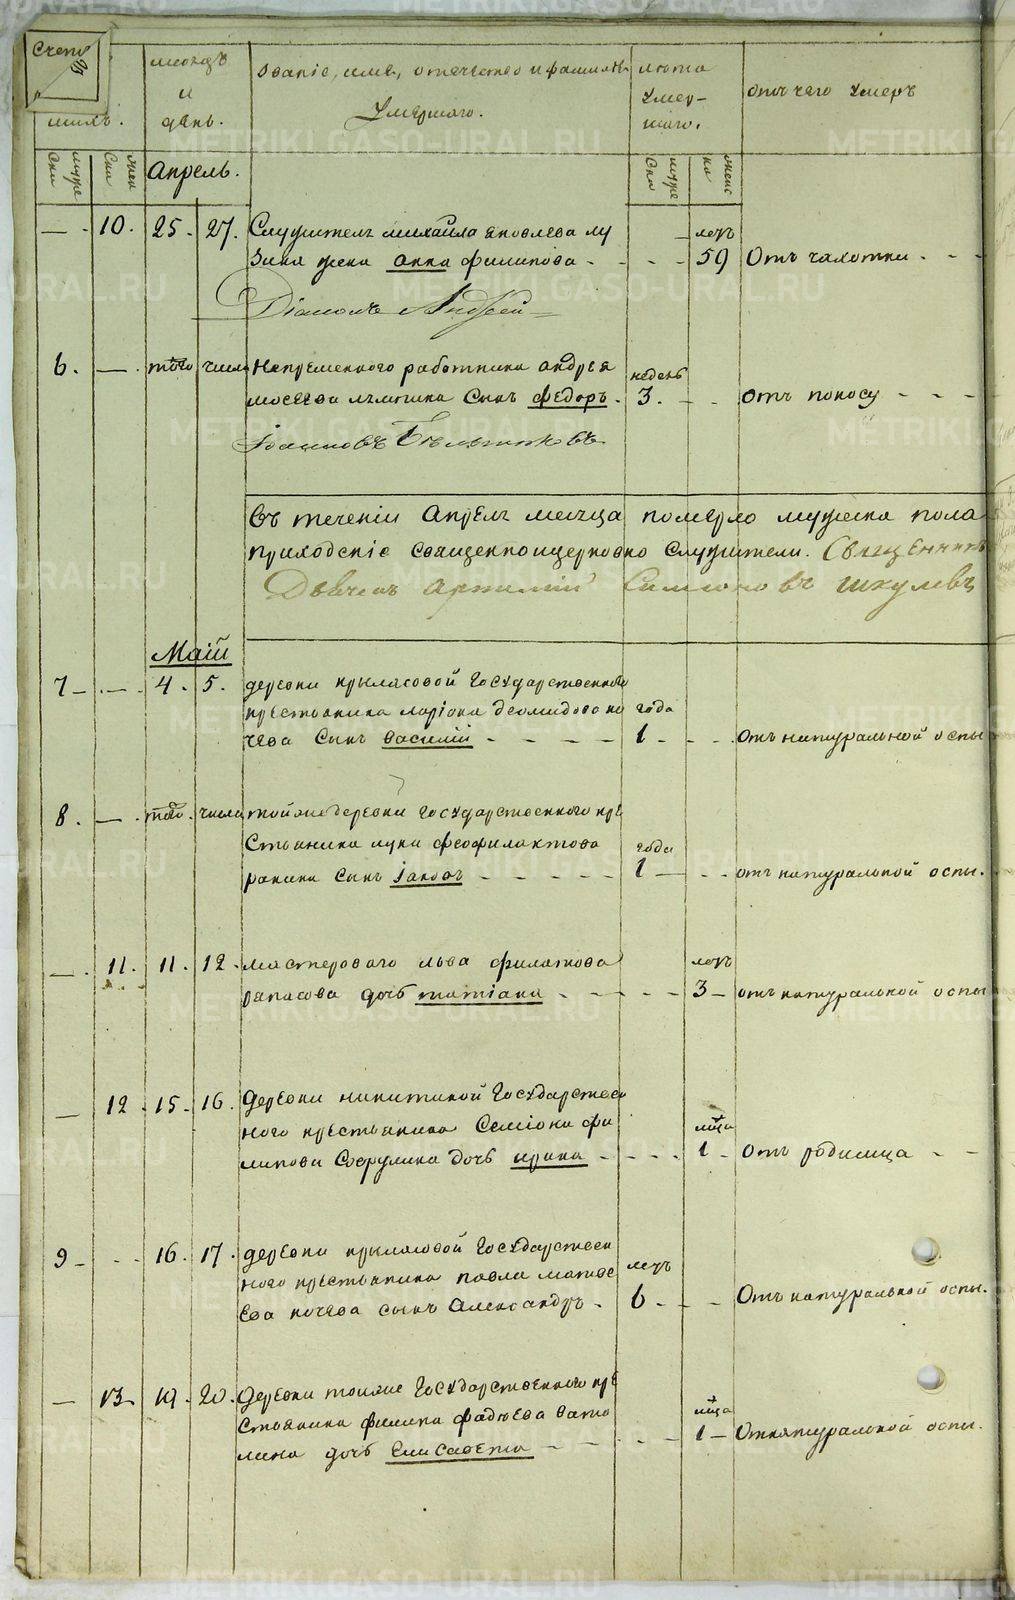 Счетъ
шихъ.
мужескаго
женска
месяцъ
и
день.
звание, имя, отчество и фамилия
Умершаго.
лета
умер-
шаго.
отъ чего умеръ
Апрель.
— . 10. 25. 27. Служителя михайла яковлева лу
зина жена анна филипова - - - - летъ 59 Отъ чахотки - - -
Діаконъ Андрей
6. — . того числа непременного работника андрея
мосеева сынъ федоръ. недель 3. - - отъ поносу - - - -
Іоанновъ
въ течении Апреля месяца померло мужеска пола
приходские священноцерковно служители. Священникъ
Симеоновъ
Маій
7 — . — . 4. 5. деревни крыласовой государственного
крестьянина ларіона деомидова ко
чева сынъ василий - - - - - года 1. - - - отъ натуральной оспы
8. — . того. числа той же деревни государственного кре
стьянина луки феофилактова
сынъ іаковъ - - - - - года 1 — - - отъ натуральной оспы.
— . 11. 11. 12. мастероваго льва филатова
дочь татіана - - - - - летъ 3 — отъ натуральной оспы
— 12. 15. 16. деревни никитиной государствен
ного крестьянина Семіона фи
липова дочь ирина - - - - м̃ца 1 - Отъ родимца - -
9 - - - 16. 17. деревни крыласовой государствен
ного крестьянина павла матве
ева кочева сынъ Александръ - летъ 6. - - Отъ натуральной оспы.
— 13. 19. 20. деревни тояже государственного кре
стьянина филипа фадеева вато
лина дочь Елисавета - - - - - м̃ца 1 — От натуральной оспы.
METRIKI.GASO-URAL.RU